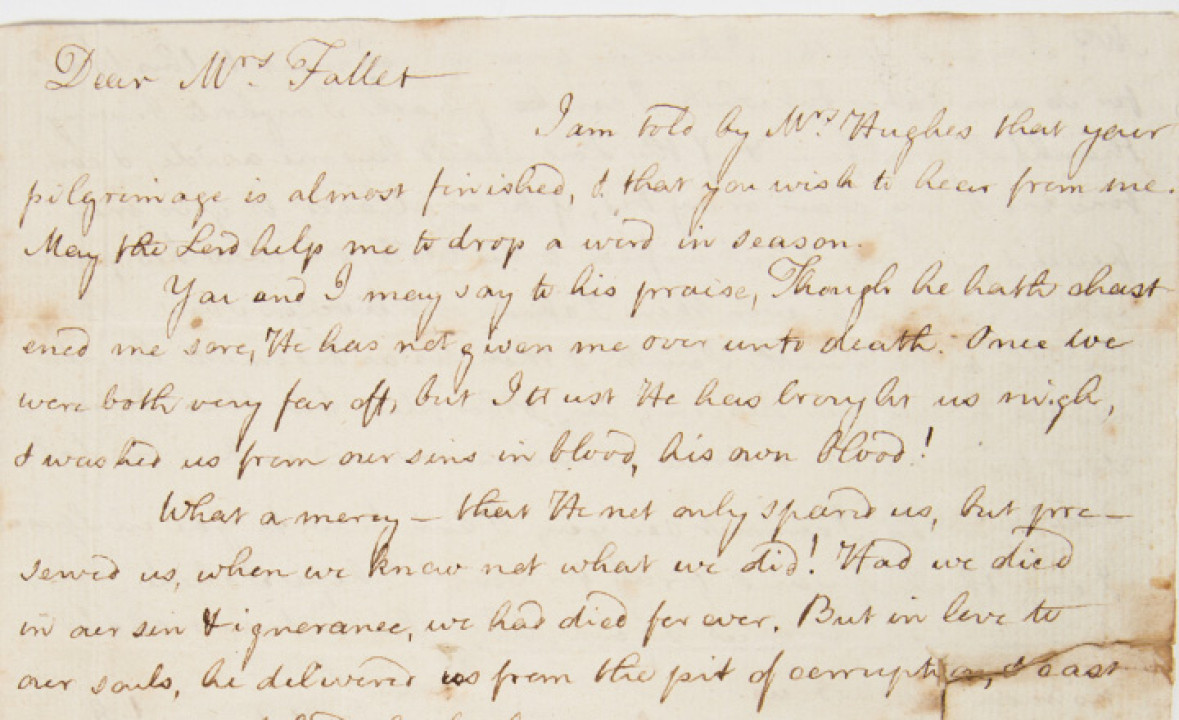 Dear Mrs. Fallet
I am told by Mrs. Hughes that your
pilgrimage is almost finished, & that you wish to hear from me.
May the Lord help me to drop a word in season.
You and I may say to his praise, Though he hath chast
ened me sore, He has not given me over unto death. Once we
were both very far off, but I trust He has brought us nigh,
& washed us from our sins in blood, his own blood!
What a mercy — that He not only spared us, but pre—
served us, when we knew not what we did! Had we died
in our sin & ignorance, we had died for ever. But in love to
our souls, he delivered us from the pit of corruption, & cast